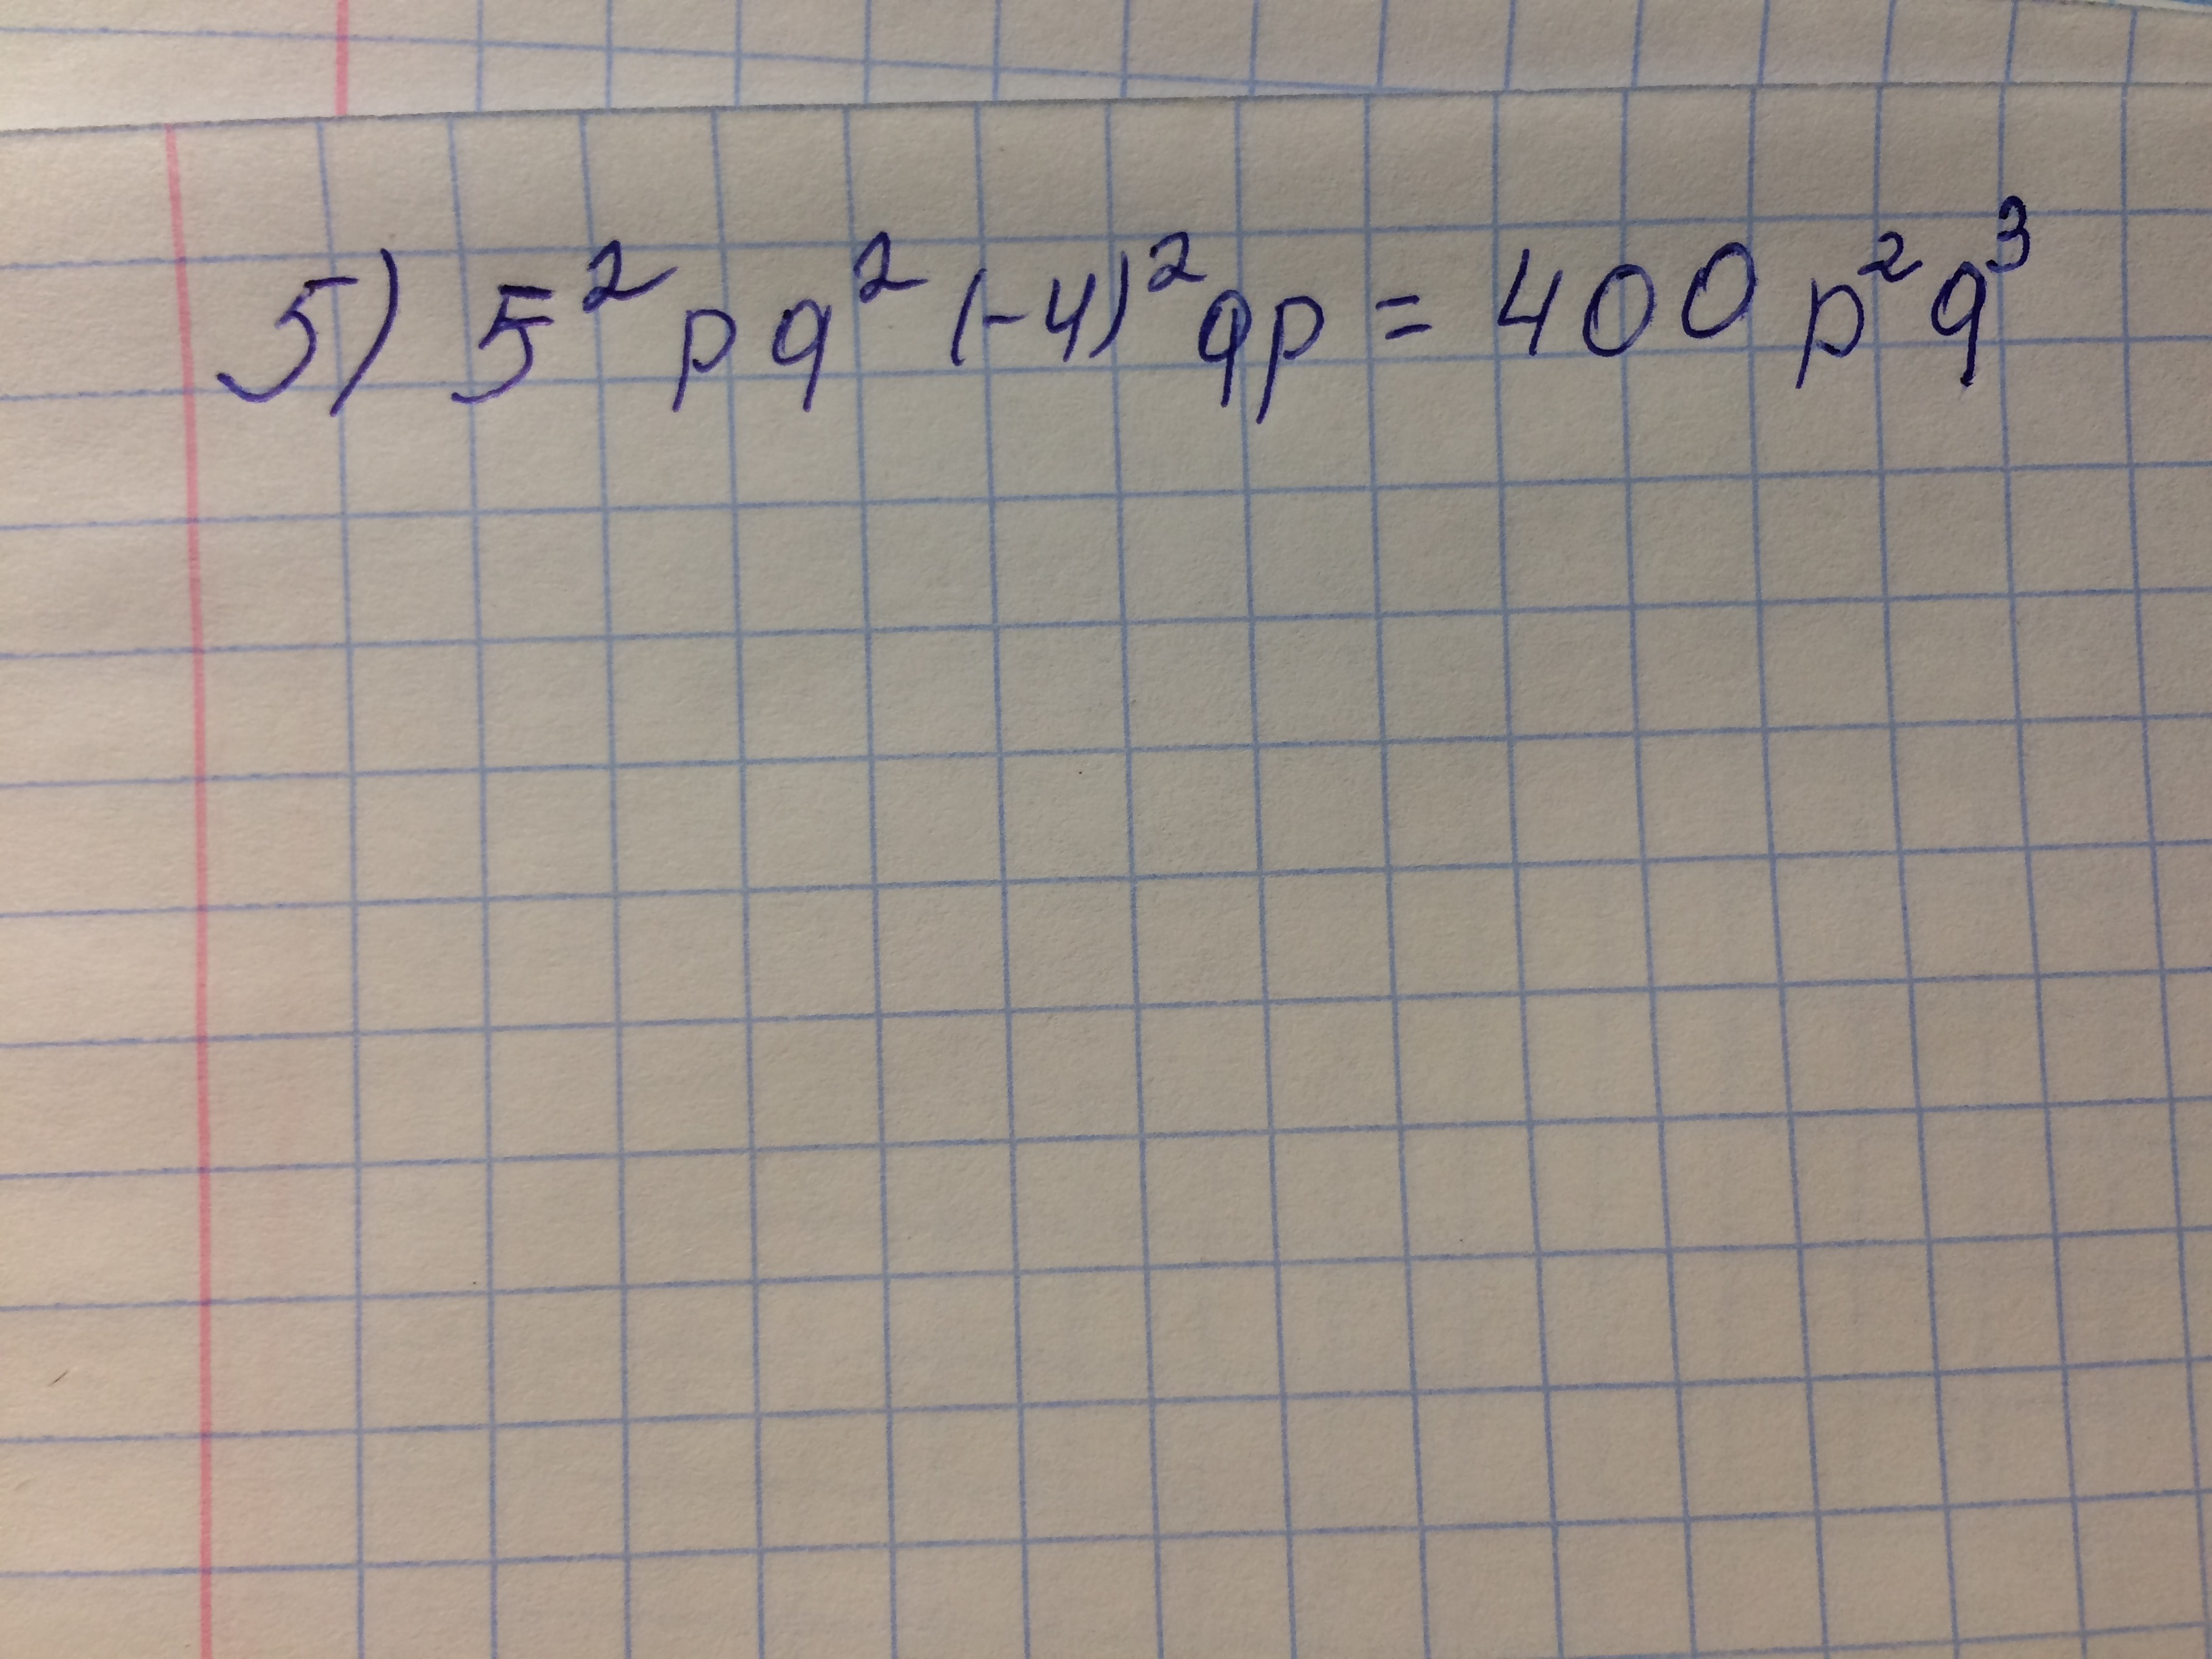 5) 5² pq² (-4)² qp = 400 p² q³